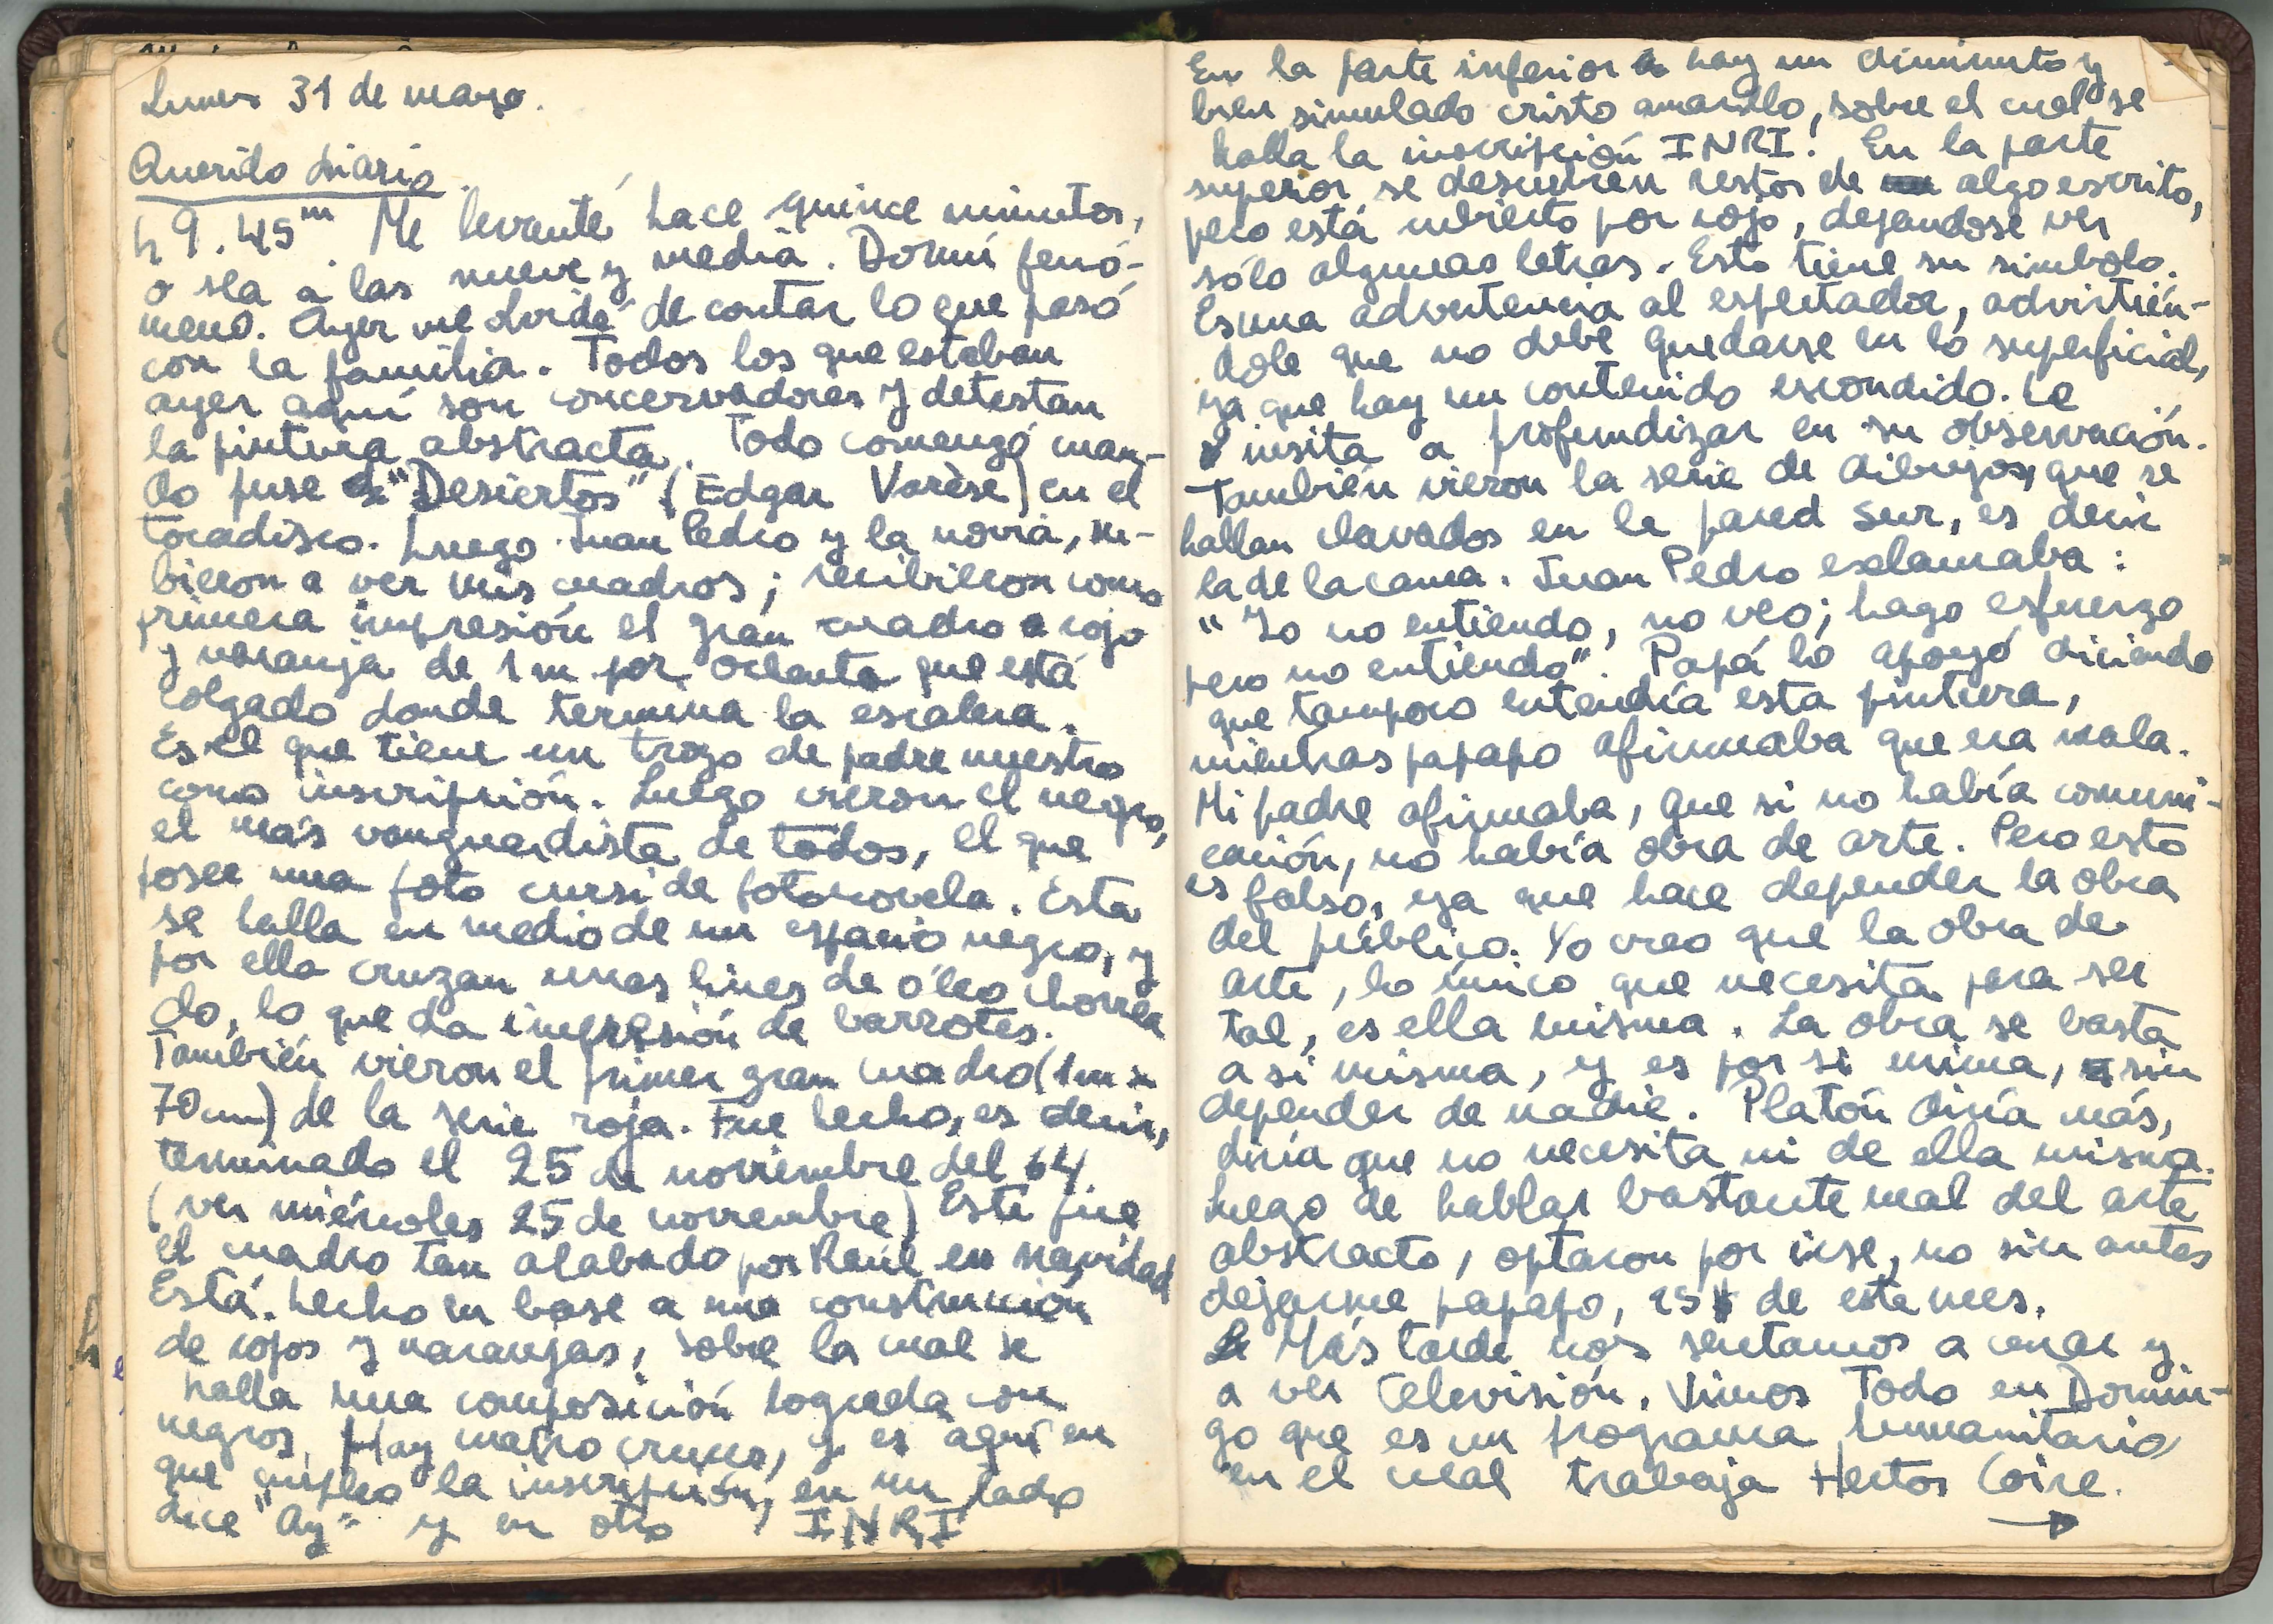 Lunes 31 de marzo.
Querido diario
h 9.45m. Me levanté hace quince minutos,
o sea a las nueve y media. Dormí fenó-
meno. Ayer me olvidé de contar lo que pasó
con la familia. Todos los que estaban
ayer aquí son concervadores y detestan
la pintura abstracta. Todo comenzó cuan-
do puse "Desiertos" (Edgar Varèse) en el
tocadisco. Luego Juan Pedro y la novia, su-
bieron a ver mis cuadros; recibieron como
primera impresión el gran cuadro rojo
y naranja de 1m por ochenta que está
colgado donde termina la escalera.
Es el que tiene un trozo de padre nuestro
como inscripción. Luego vieron el negro,
el más vanguardista de todos, el que
posee una foto cursi de fotonovela. Esta
se halla en medio de un espacio negro, y
por ella cruzan unas lines de óleo chorrea
do, lo que da impresión de barrotes.
También vieron el primer gran cuadro (1m x
70cm) de la serie roja. Fue hecho, es decir,
terminado el 25 de noviembre del 64
(ver miércoles 25 de noviembre) Este fue
el cuadro tan alabado por Raúl en navidad
Está hecho en base a una construcción
de rojos y naranjas, sobre la cual se
halla una composición lograda con
negros. Hay cuatro cruces, y es aquí en
que empleo la inscripción, en un lado
dice "Ay" y en otro INRI
En la parte inferior hay un diminuto y
bien simulado cristo amarillo, sobre el cual se
halla la inscripción INRI! En la parte
superior se descubren restos de algo escrito,
pero está cubierto por rojo, dejandose ver
sólo algunas letras. Esto tiene su simbolo.
Es una advertencia al espectador, advirtién-
dole que no debe quedarse en lo superficial,
ya que hay un contenido escondido. Le
insita a profundizar en su observación.
También vieron la serie de dibujos, que se
hallan clavados en la pared sur, es decir
la de la cama. Juan Pedro exclamaba:
"Yo no entiendo, no veo; hago esfuerzo
pero no entiendo". Papá lo apoyó diciendo
que tampoco entendía esta pintura,
mientras papapo afirmaba que era mala.
Mi padre afirmaba, que si no había comuni-
cación, no había obra de arte. Pero esto
es falso, ya que hace depender la obra
del público. Yo creo que la obra de
arte, lo único que necesita para ser
tal, es ella misma. La obra se basta
a si misma, y es por si mima, sin
depender de nadie. Platón diría más,
diría que no necesita ni de ella misma.
Luego de hablar bastante mal del arte
abstracto, optaron por irse, no sin antes
dejarme papapo, 15 $ de este mes.
Más tarde nos sentamos a cenar y
a ver televisión. Vimos Todo en Domin-
go que es un programa humanitario
en el cual trabaja Hector Coire.
→